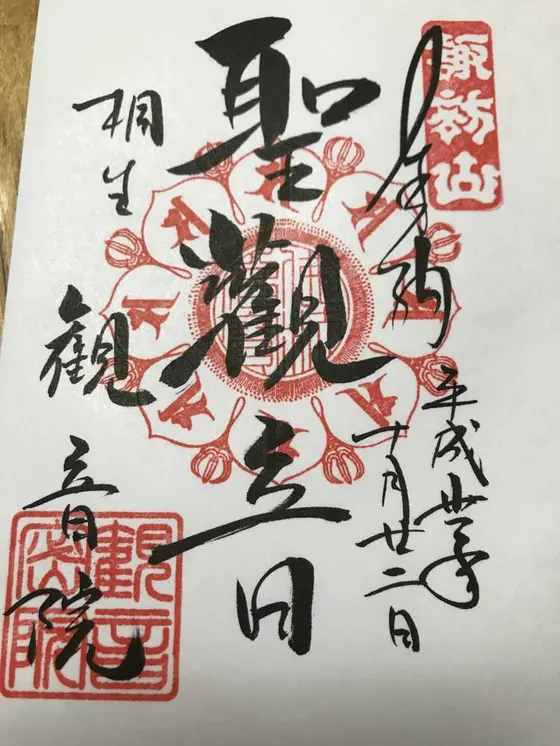 諏訪山
奉納
平成丗年
十月廿二日
聖觀音
相生
観音院
觀音
院